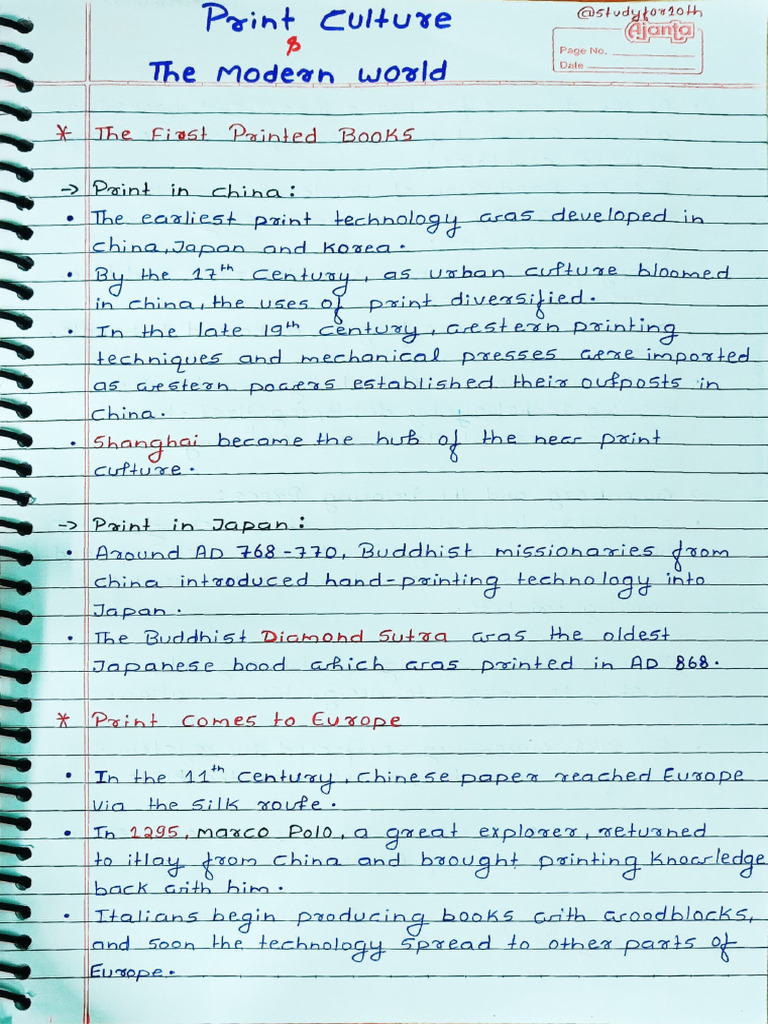 Print Culture
@studyfor10th
&
Ajanta
The Modern World
Page No.
Date
* The First Printed Books
→ Print in China:
• The earliest print technology was developed in
China, Japan and Korea.
• By the 17th Century, as urban culture bloomed
in China, the uses of print diversified.
• In the late 19th century, western printing
techniques and mechanical presses were imported
as western powers established their outposts in
China.
• Shanghai became the hub of the new print
culture.
→ Print in Japan:
• Around AD 768-770, Buddhist missionaries from
China introduced hand-printing technology into
Japan.
• The Buddhist Diamond Sutra was the oldest
Japanese bood which was printed in AD 868.
* Print Comes to Europe
• In the 11th Century, Chinese paper reached Europe
via the silk route.
• In 1295, Marco Polo, a great explorer, returned
to itlay from China and brought printing Knowledge
back with him.
• Italians begin producing books with woodblocks,
and soon the technology spread to other parts of
Europe.